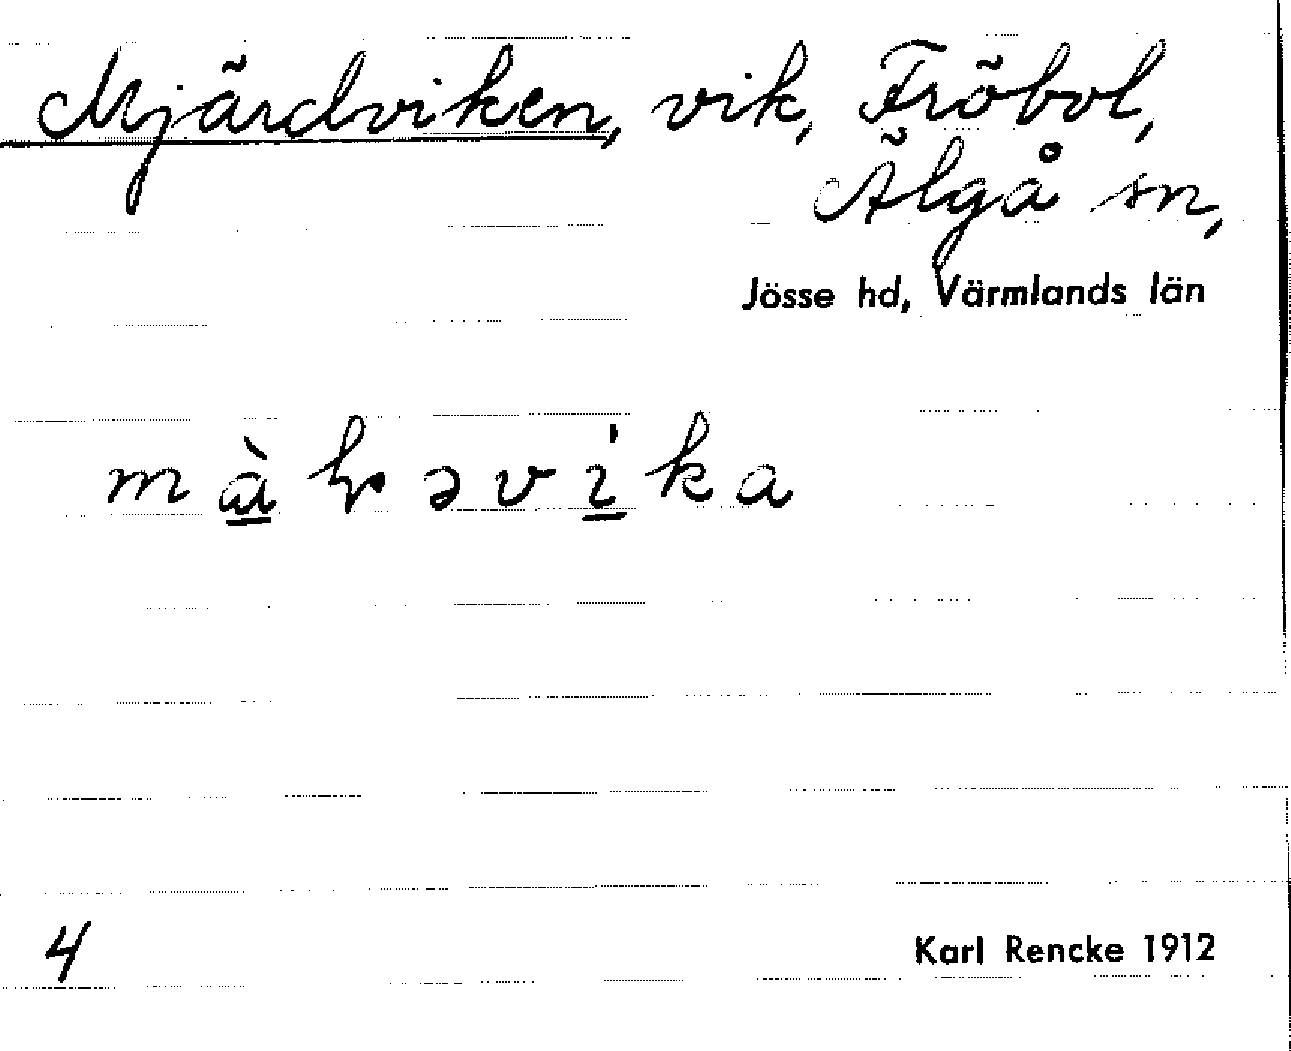 Mjärdviken, vik, Fröbol,
Älgå sn,
Jösse hd, Värmlands län
4
Karl Rencke 1912